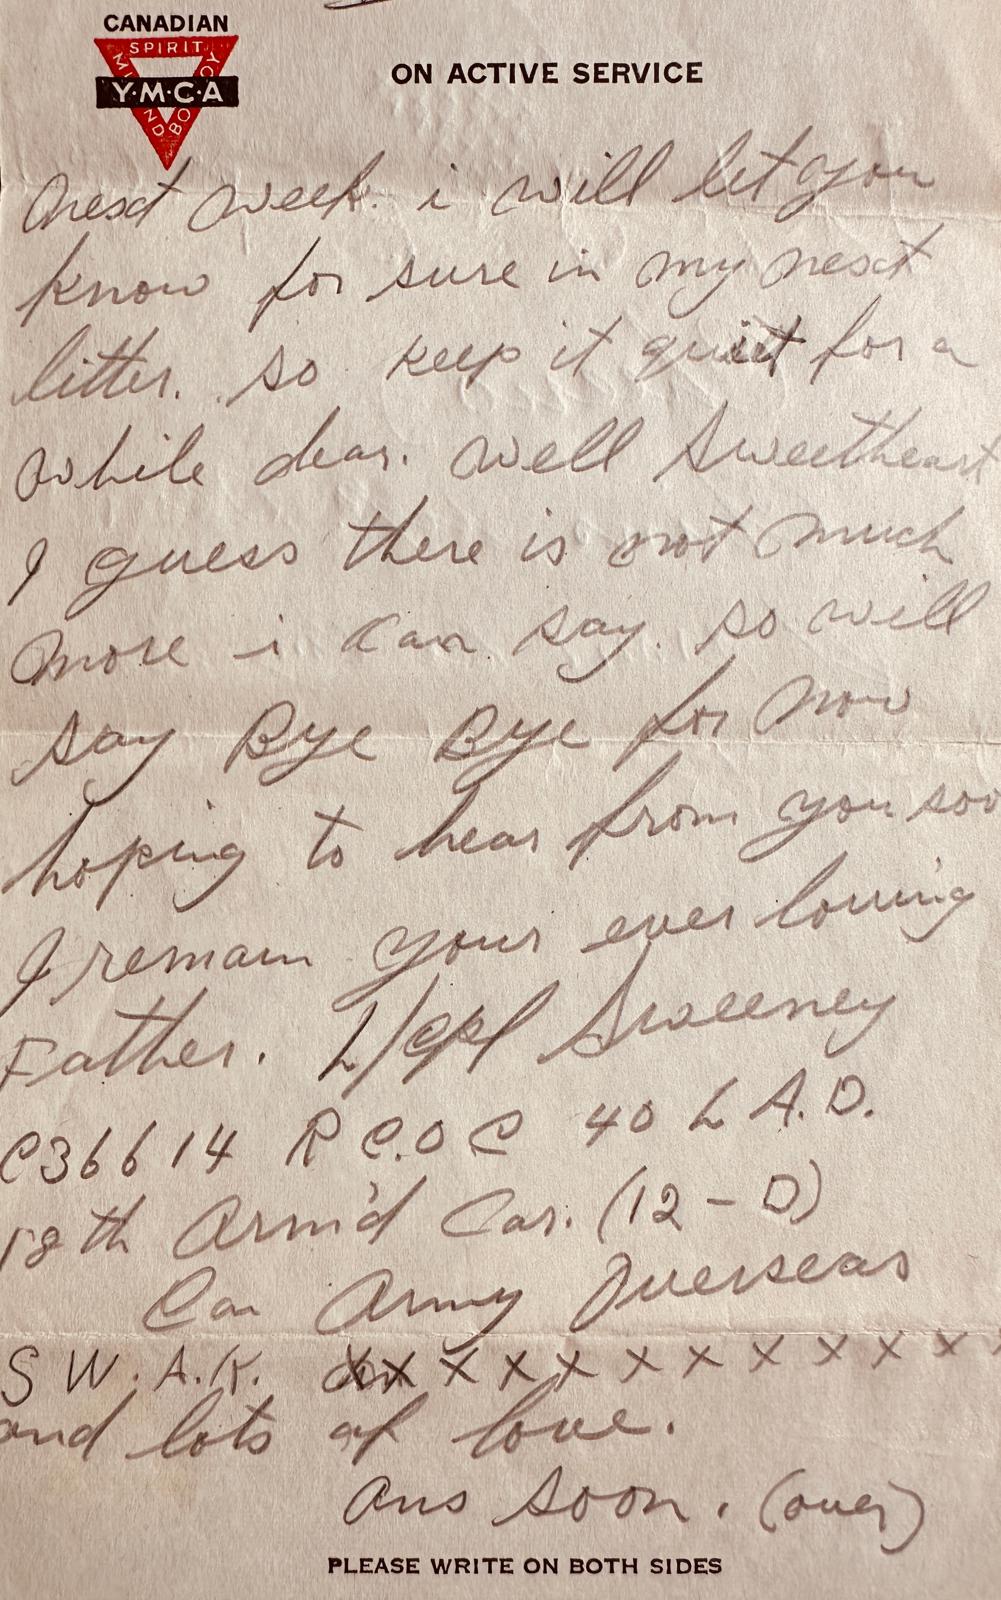 CANADIAN
SPIRIT
MIND
BODY
Y·M·C·A
ON ACTIVE SERVICE
next week. i will let you
know for sure in my next
litter. so keep it quiet for a
while dear. well Sweetheart
I guess there is not much
more i can say. so will
say Bye Bye for now
hoping to hear from you soo
I remain your ever loving
Father. L/cpl Sweeney
C36614 R C.O C 40 L A.D.
18th Arm'd Car. (12 - D)
Can Army Overseas
S W. A. K. xx x x x x x x x x x
and lots of love.
ans soon. (over)
PLEASE WRITE ON BOTH SIDES